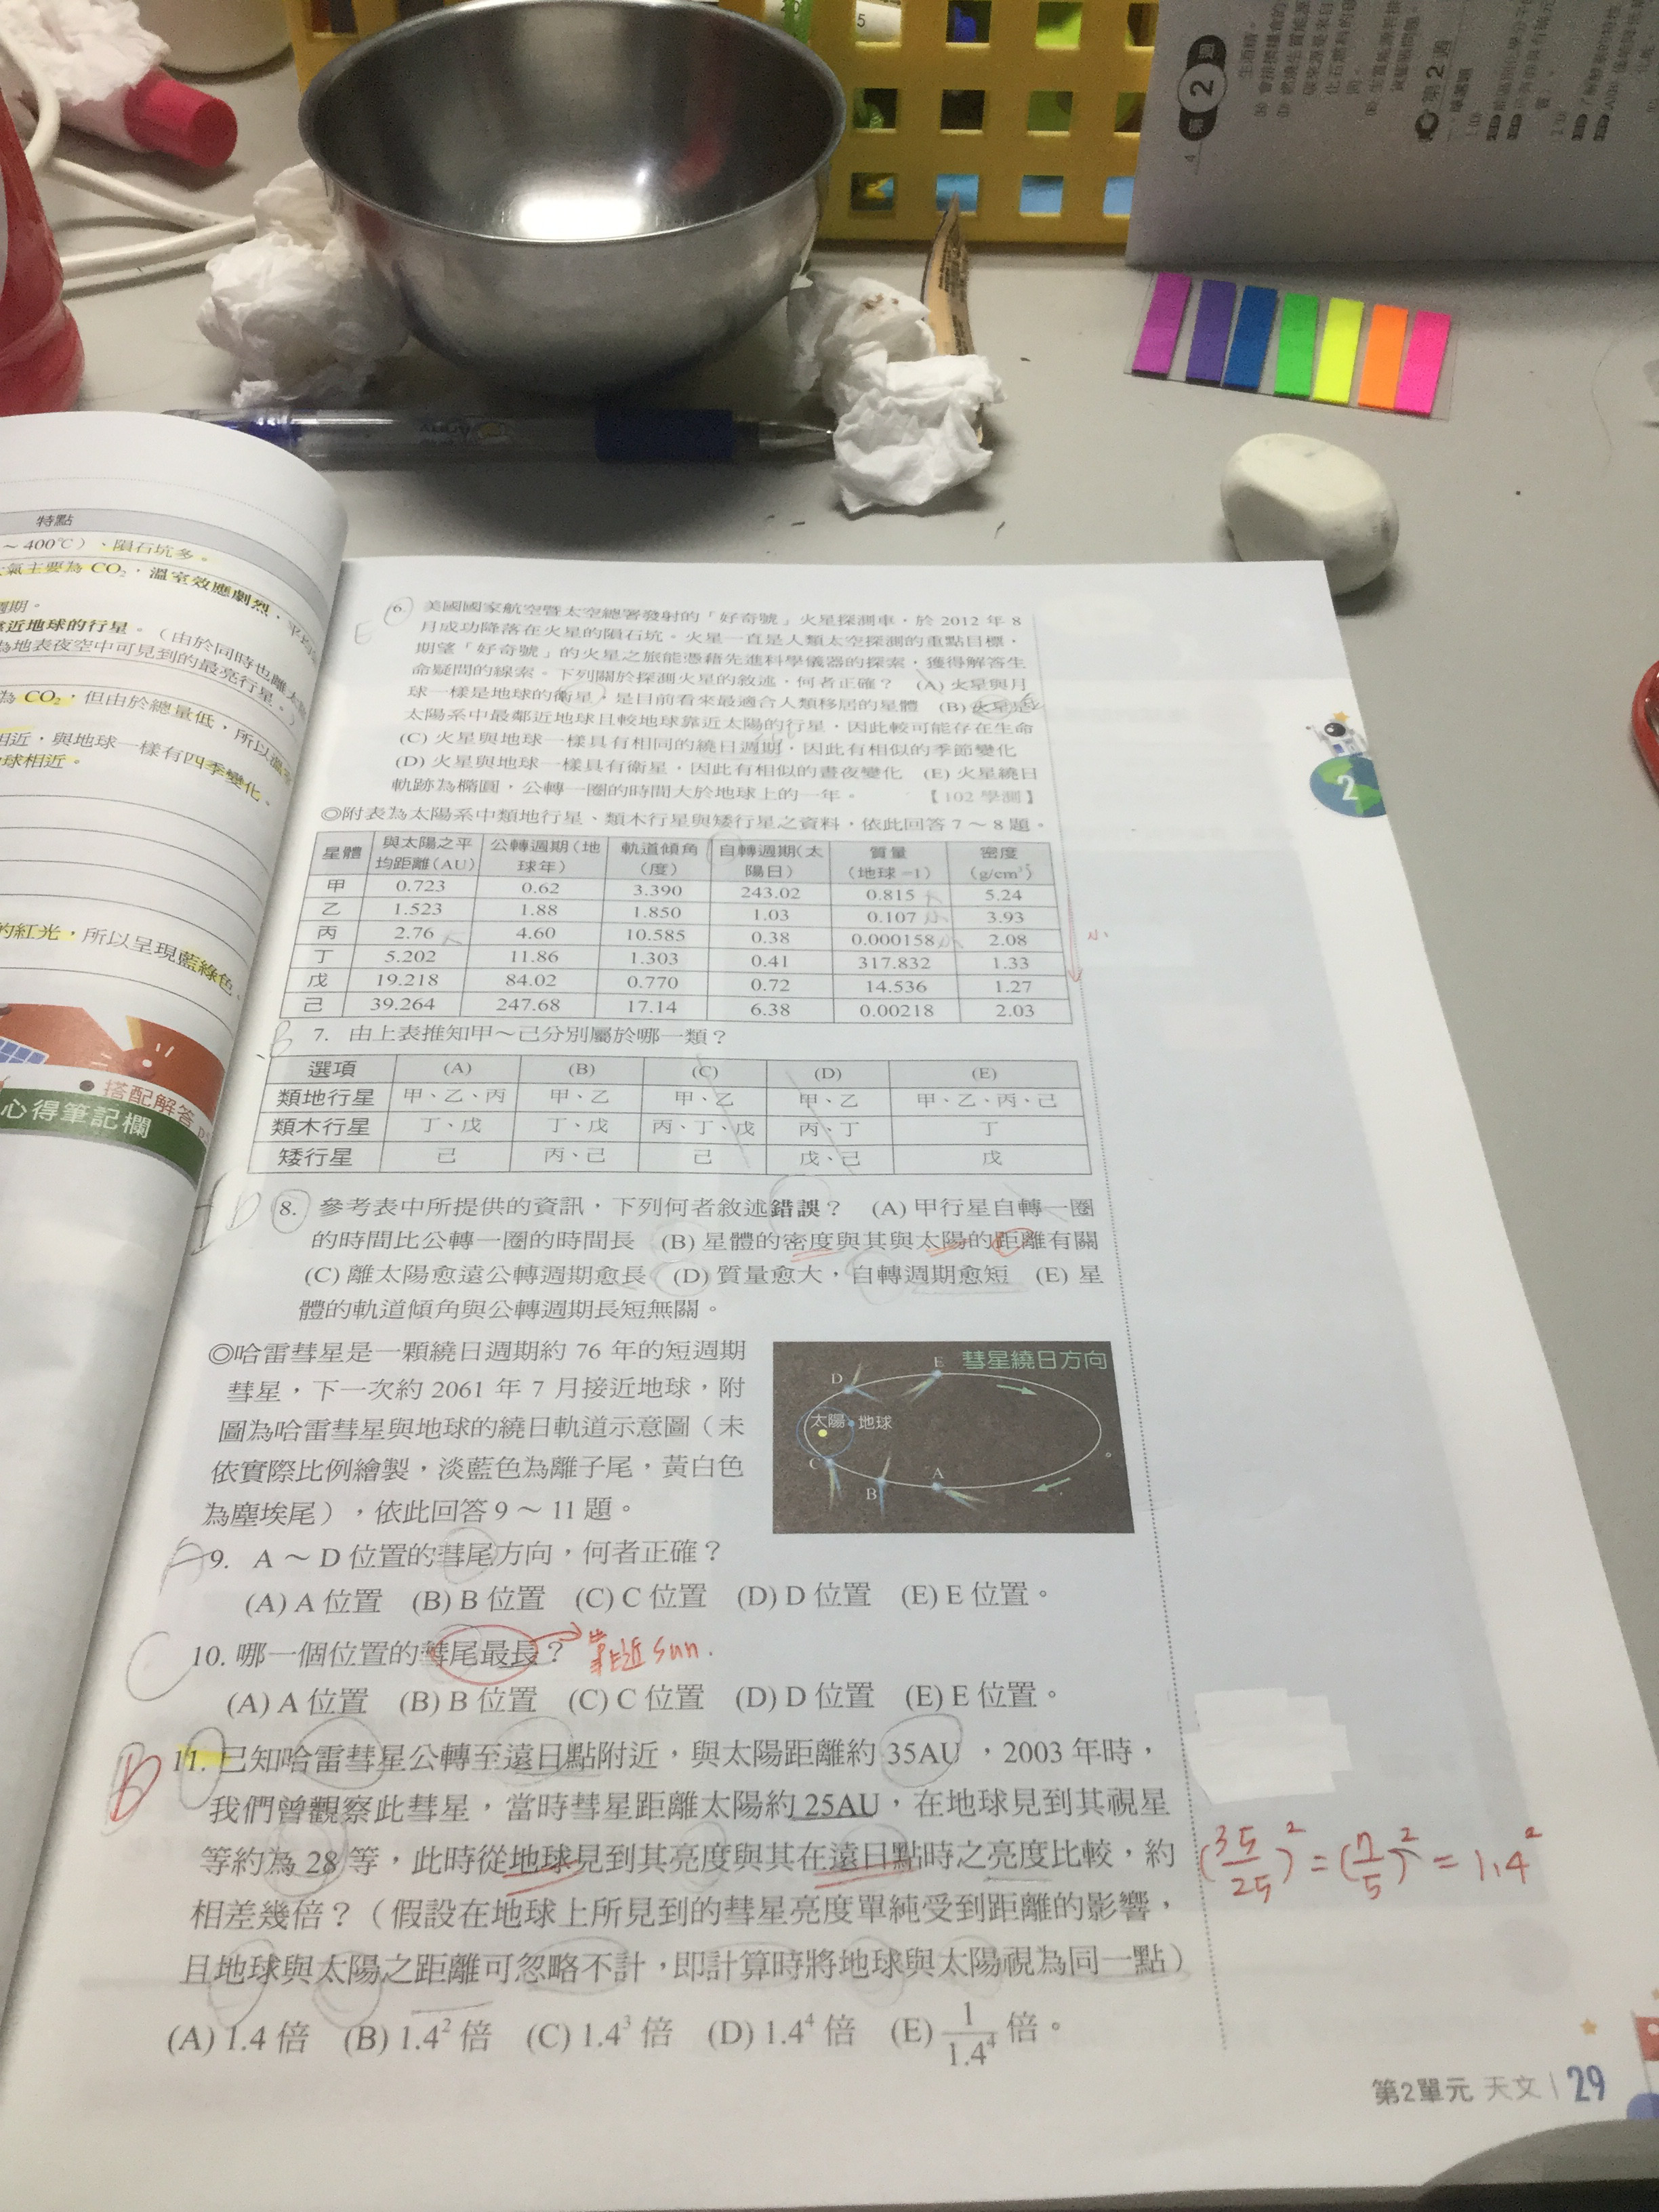 5
第 2 週
第 2 週
4
特點
~400℃)、隕石坑多。
氣主要為 CO₂,溫室效應劇烈,平均
週期。
靠近地球的行星。(由於同時也離太
為地表夜空中可見到的最亮行星。)
為 CO₂,但由於總量低,所以溫室
相近,與地球一樣有四季變化。
球相近。
的紅光,所以呈現藍綠色。
搭配解答
心得筆記欄
E
6. 美國國家航空暨太空總署發射的「好奇號」火星探測車,於 2012 年 8
月成功降落在火星的隕石坑。火星一直是人類太空探測的重點目標,
期望「好奇號」的火星之旅能憑藉先進科學儀器的探索,獲得解答生
命疑問的線索。下列關於探測火星的敘述,何者正確? (A) 火星與月
球一樣是地球的衛星,是目前看來最適合人類移居的星體 (B) 火星是
太陽系中最鄰近地球且較地球靠近太陽的行星,因此較可能存在生命
(C) 火星與地球一樣具有相同的繞日週期,因此有相似的季節變化
(D) 火星與地球一樣具有衛星,因此有相似的晝夜變化 (E) 火星繞日
軌跡為橢圓,公轉一圈的時間大於地球上的一年。 【102 學測】
◎附表為太陽系中類地行星、類木行星與矮行星之資料,依此回答 7~8 題。
星體 與太陽之平均距離(AU) 公轉週期(地球年) 軌道傾角(度) 自轉週期(太陽日) 質量(地球=1) 密度(g/cm³)
甲 0.723 0.62 3.390 243.02 0.815 大 5.24
乙 1.523 1.88 1.850 1.03 0.107 小 3.93
丙 2.76 大 4.60 10.585 0.38 0.000158 小 2.08
小
丁 5.202 11.86 1.303 0.41 317.832 1.33
戊 19.218 84.02 0.770 0.72 14.536 1.27
己 39.264 247.68 17.14 6.38 0.00218 2.03
B
7. 由上表推知甲~己分別屬於哪一類?
選項 (A) (B) (C) (D) (E)
類地行星 甲、乙、丙 甲、乙 甲、乙 甲、乙 甲、乙、丙、己
類木行星 丁、戊 丁、戊 丙、丁、戊 丙、丁 丁
矮行星 己 丙、己 己 戊、己 戊
D
8. 參考表中所提供的資訊,下列何者敘述錯誤? (A) 甲行星自轉一圈
的時間比公轉一圈的時間長 (B) 星體的密度與其與太陽的距離有關
(C) 離太陽愈遠公轉週期愈長 (D) 質量愈大,自轉週期愈短 (E) 星
體的軌道傾角與公轉週期長短無關。
◎哈雷彗星是一顆繞日週期約 76 年的短週期
彗星,下一次約 2061 年 7 月接近地球,附
圖為哈雷彗星與地球的繞日軌道示意圖(未
依實際比例繪製,淡藍色為離子尾,黃白色
為塵埃尾),依此回答 9~11 題。
彗星繞日方向
E
D
太陽 地球
C
B
A
A
9. A~D 位置的彗尾方向,何者正確?
(A) A 位置 (B) B 位置 (C) C 位置 (D) D 位置 (E) E 位置。
C
10. 哪一個位置的彗尾最長? 靠近 sun.
(A) A 位置 (B) B 位置 (C) C 位置 (D) D 位置 (E) E 位置。
B
11. 已知哈雷彗星公轉至遠日點附近,與太陽距離約 35AU,2003 年時,
我們曾觀察此彗星,當時彗星距離太陽約 25AU,在地球見到其視星
等約為 28 等,此時從地球見到其亮度與其在遠日點時之亮度比較,約
相差幾倍?(假設在地球上所見到的彗星亮度單純受到距離的影響,
且地球與太陽之距離可忽略不計,即計算時將地球與太陽視為同一點)
(A) 1.4 倍 (B) 1.4² 倍 (C) 1.4³ 倍 (D) 1.4⁴ 倍 (E) 1/1.4⁴ 倍。
(35/25)² = (7/5)² = 1.4²
2
第2單元 天文 | 29